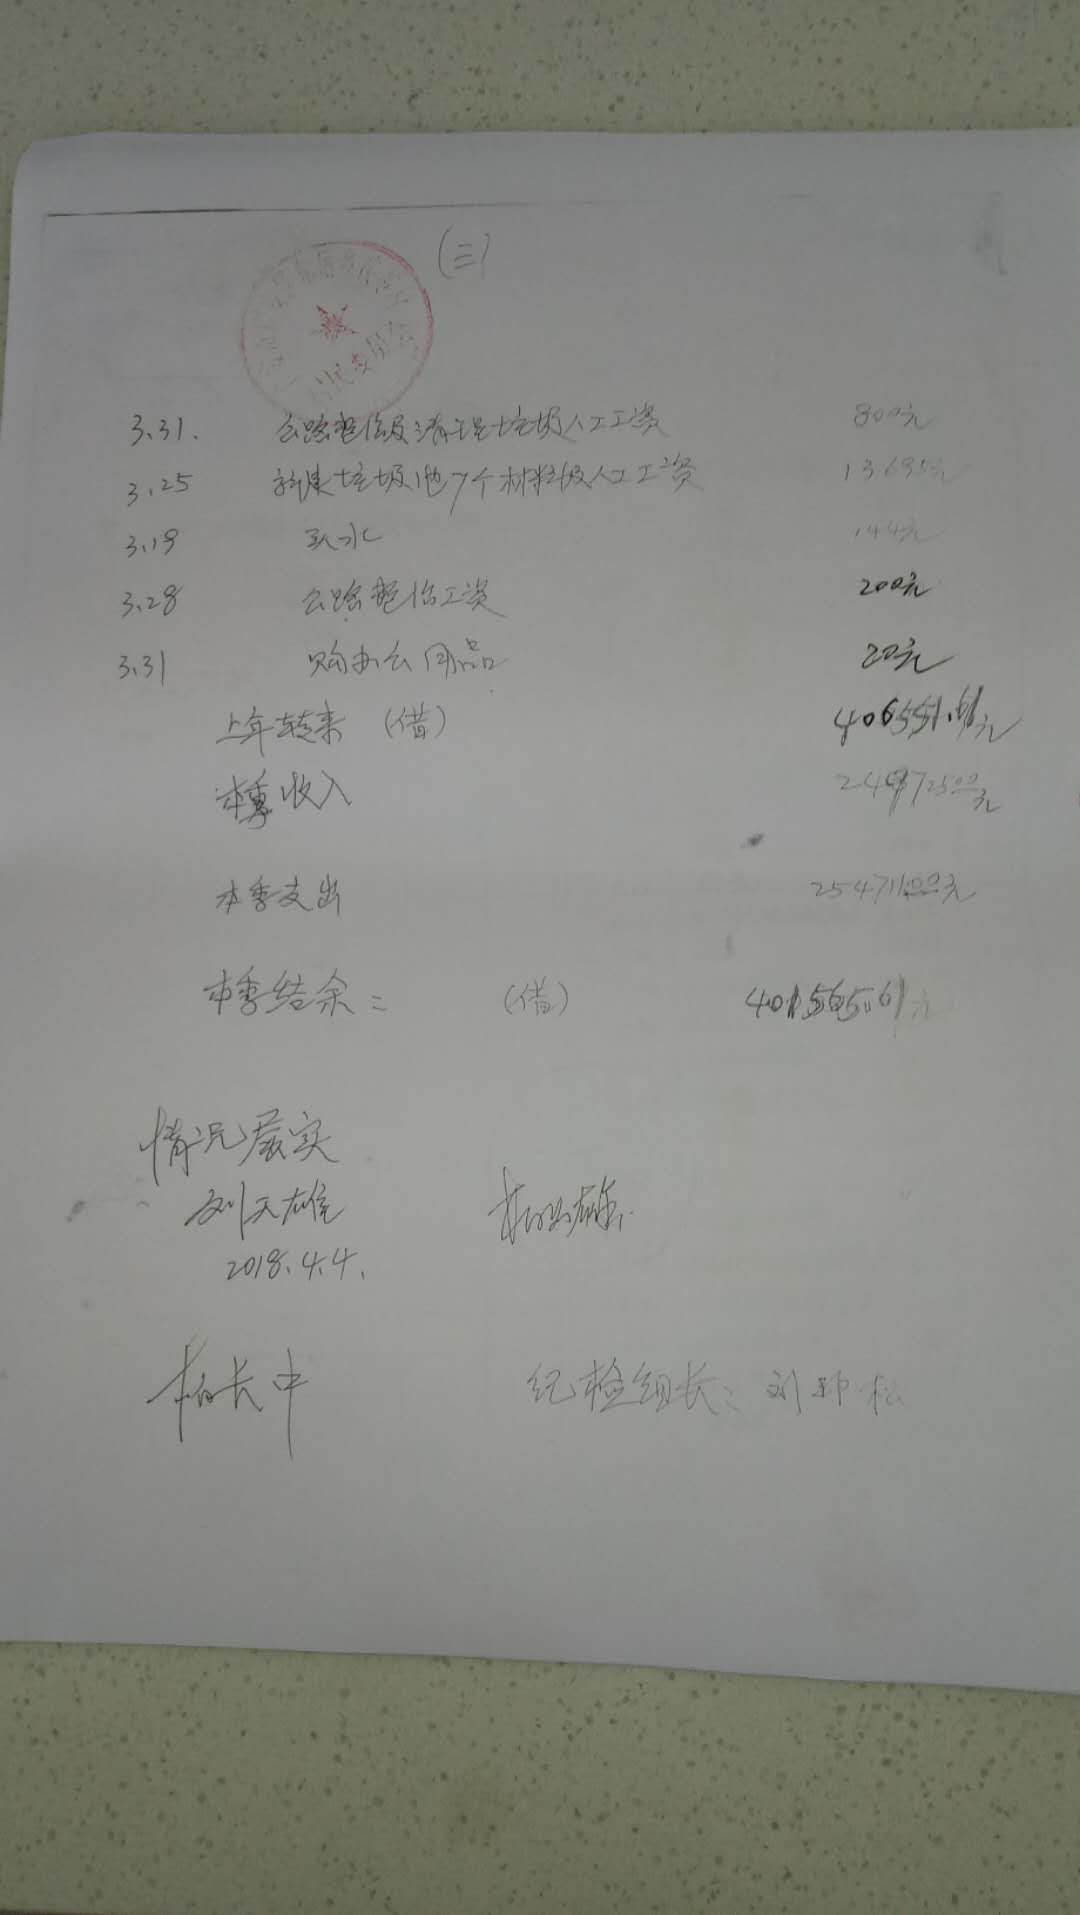 (三)
村民委员会
3.31. 公路整修及清理垃圾人工工资 800元
3.25 新建垃圾池7个材料及人工工资 13695元
3.19 买水 144元
3.28 公路整修工资 200元
3.31 购办公用品 20元
上年转来 (借) 406551.61元
本季收入
本季支出 254711.00元
本季结余: (借)
情况属实
刘天雄
2018.4.4.
柏长中 纪检组长: 刘松